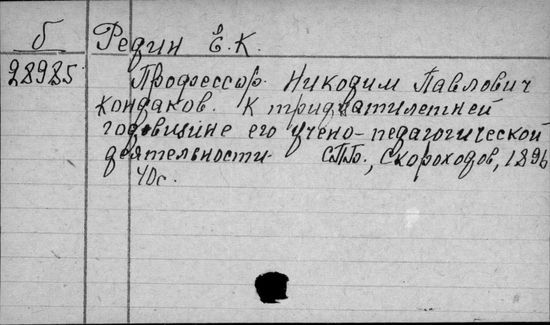 б Редин Е.К.
28985 Профессор Никодим Павлович
Кондаков. К тридцатилетней
годовщине его учено-педагогической
деятельности СПб., Скороходов, 1896
40с.